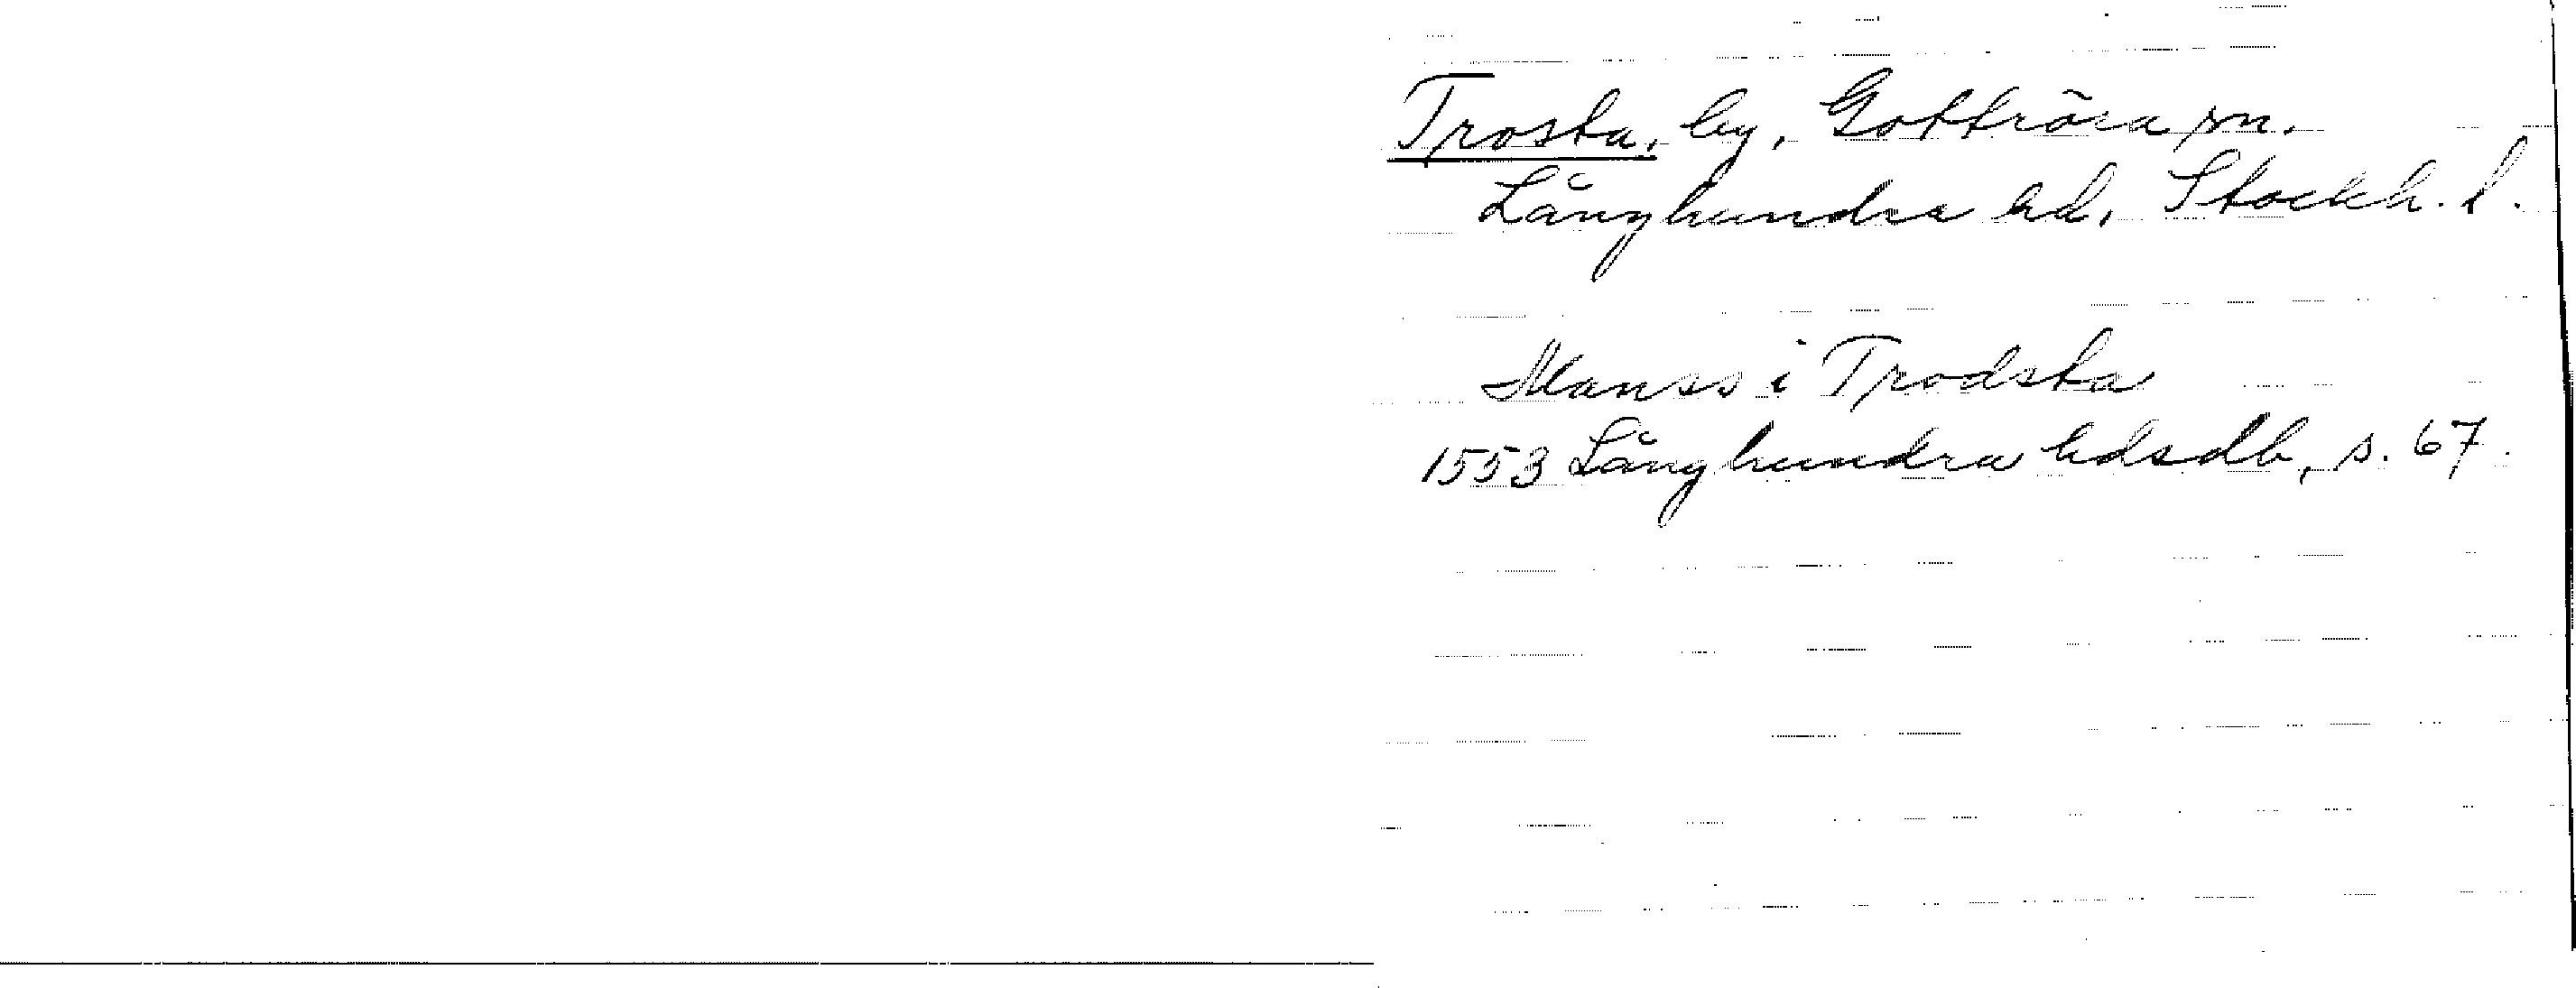 Trosta, by, Gottröra sn.
Långhundra hd, Stockh. l.
Manss i Trodsta
1553 Långhundra hdsdb, s. 67.